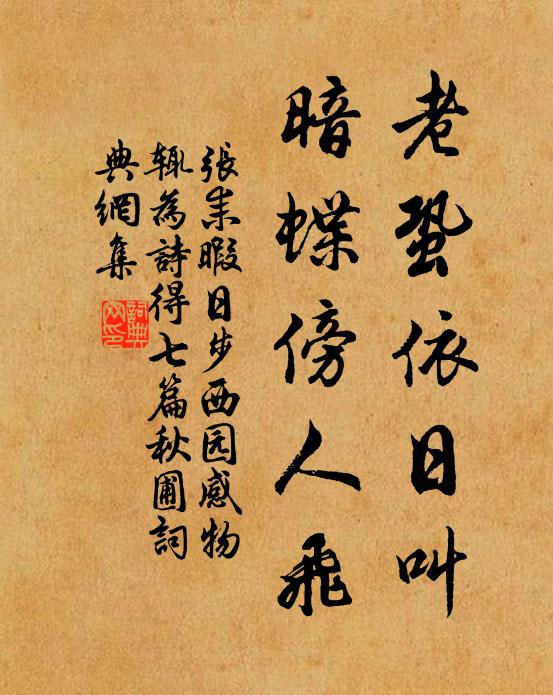 老蛩依日叫
暗蝶傍人飛
張耒暇日步西园感物
輒為詩得七篇秋圃詞
典網集
詞典
网印